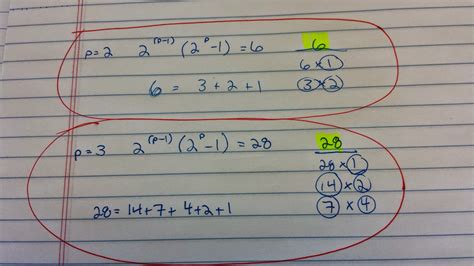 p=2 2^(p-1) (2^p-1) = 6 6
6 × 1
6 = 3+2+1 3 × 2
p=3 2^(p-1) (2^p-1) = 28 28
28 × 1
14 × 2
28 = 14+7+4+2+1 7 × 4